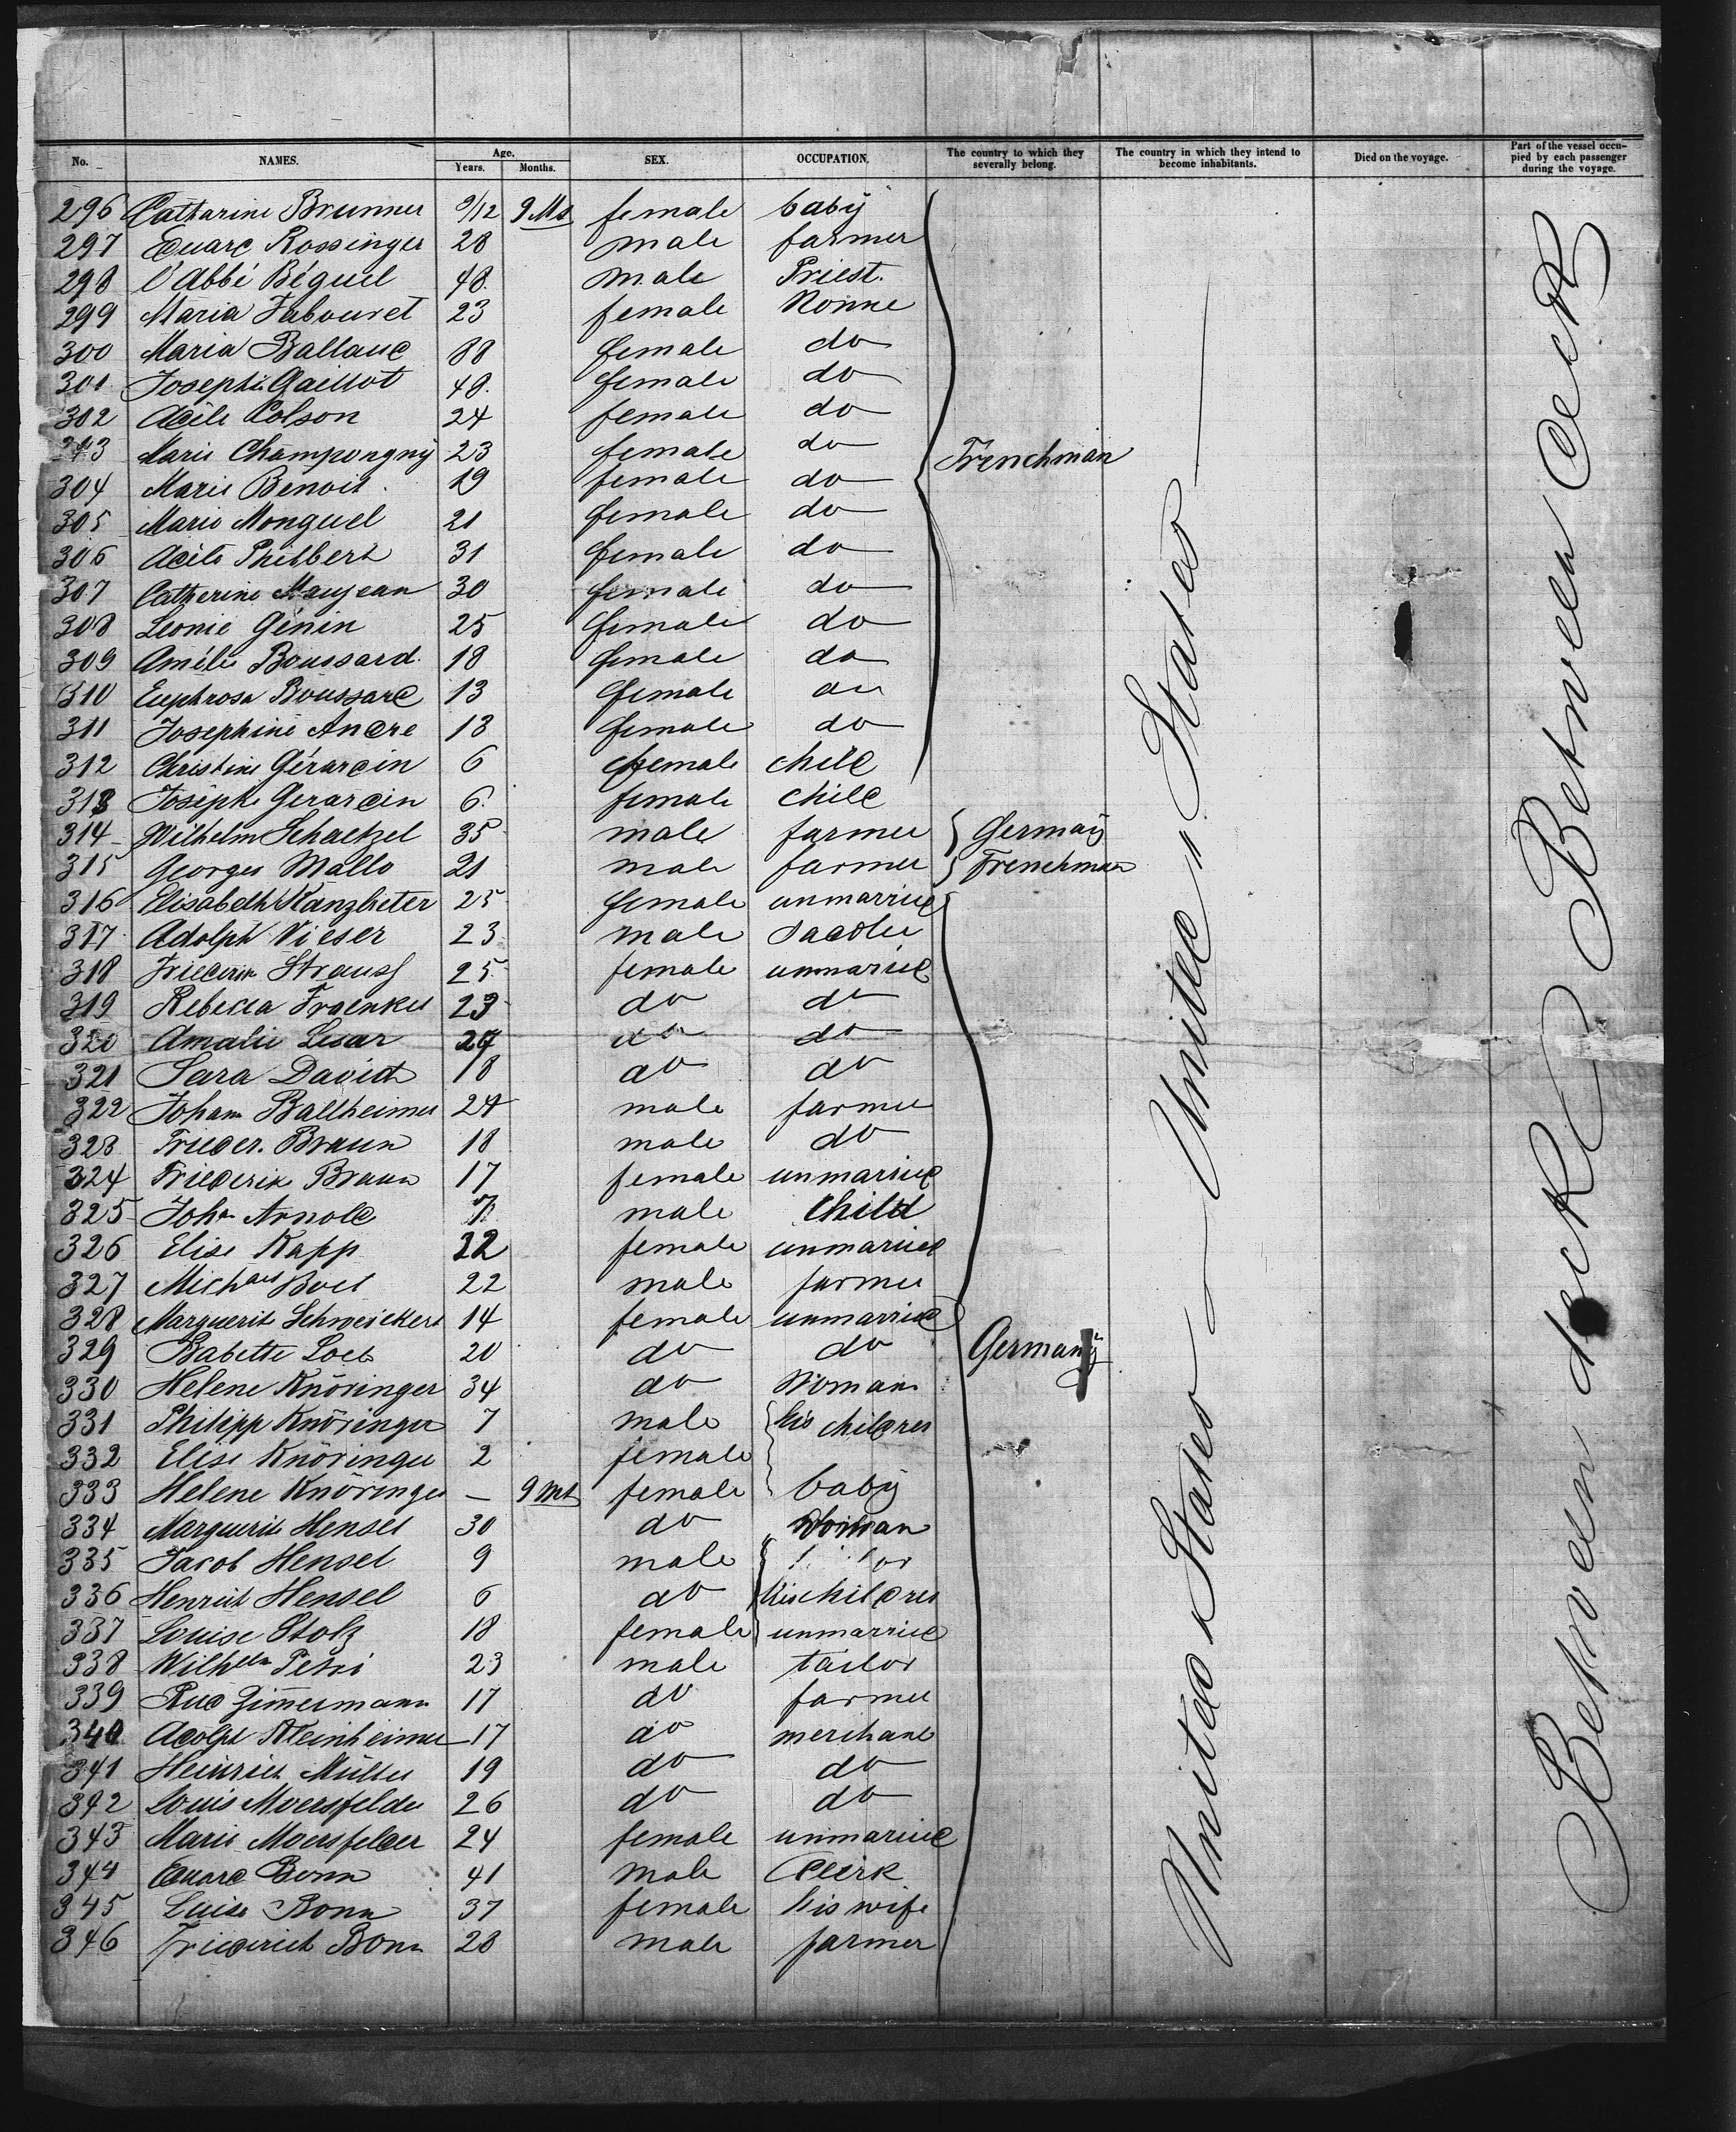 No. NAMES. Age. Years. Months. SEX. OCCUPATION. The country to which they severally belong. The country in which they intend to become inhabitants. Died on the voyage. Part of the vessel occupied by each passenger during the voyage.
296 Catharine Brunner 9/12 9 Ms female baby
297 Eduard Rossinger 28 male farmer
298 l'Abbé Béquel 48 male Priest.
299 Maria Tabouret 23 female Nonne
300 Maria Balland 88 female do
301 Josephi Gaillot 48. female do
302 Acile Colson 24 female do
Marie Champougny 23 female do Frenchman
304 Marie Benoit 19 female do
305 Marie Monguel 21 female do
306 Acile Philbert 31 female do
307 Catherine Maujean 30 female do
308 Leonie Génin 25 female do
309 Amélie Boussard 18 female do
310 Euphrosa Boussard 13 female do
311 Josephine Andre 18 female do
312 Christine Gérardin 6 female child
313 Joseph Gerardin 6. female child
314 Wilhelm Schaetzel 35 male farmer Germany
315 Georges Mallo 21 male farmer Frenchman
316 Elisabeth Kanzlieter 25 female unmarried
317 Adolph Vieser 23 male Sadler
318 Friederik Strauss 25 female unmarried
319 Rebecca Fraenkel 23 do do
320 Amalie Lesar 27 do do
321 Sara David 18 do do
322 Johann Ballheimer 24 male farmer
323 Frieder. Braun 18 male do
324 Friederik Braun 17 female unmarried
325 Joh Arnold male Child
326 Elise Kapp 22 female unmarried
327 Michael Boel 22 male farmer
328 Marguerit Schweickert 14 female unmarried
329 Babette Loeb 20 do do Germany
330 Helene Knöringer 34 do Woman
331 Philipp Knöringer 7 male his children
332 Elise Knöringer 2 female
333 Helene Knöringer — 9 Mt female baby
334 Marguerit Hensel 30 do Woman
335 Jacob Hensel 9 male
336 Henrich Hensel 6 do his children
337 Louise Stolz 18 female unmarried
338 Wilhelm Petri 23 male tailor
339 Rud Zimmermann 17 do farmer
340 Adolph Steinheimer 17 do merchant
341 Heinrich Müller 19 do do
342 Louis Moersfelder 26 do do
343 Marie Moersfelder 24 female unmarried
344 Eduard Bonn 41 male Clerk
345 Luise Bonn 37 female his wife
346 Friedrich Bonn 28 male farmer
United States — United States —
Between deck Between Deck